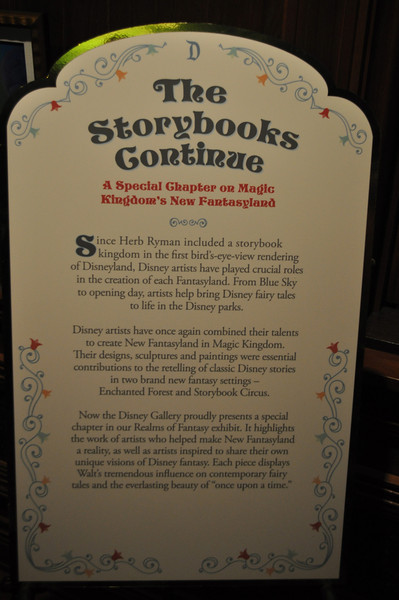 D
The
Storybooks
Continue
A Special Chapter on Magic
Kingdom's New Fantasyland
Since Herb Ryman included a storybook
kingdom in the first bird's-eye-view rendering
of Disneyland, Disney artists have played crucial roles
in the creation of each Fantasyland. From Blue Sky
to opening day, artists help bring Disney fairy tales
to life in the Disney parks.
Disney artists have once again combined their talents
to create New Fantasyland in Magic Kingdom.
Their designs, sculptures and paintings were essential
contributions to the retelling of classic Disney stories
in two brand new fantasy settings –
Enchanted Forest and Storybook Circus.
Now the Disney Gallery proudly presents a special
chapter in our Realms of Fantasy exhibit. It highlights
the work of artists who helped make New Fantasyland
a reality, as well as artists inspired to share their own
unique visions of Disney fantasy. Each piece displays
Walt's tremendous influence on contemporary fairy
tales and the everlasting beauty of "once upon a time."